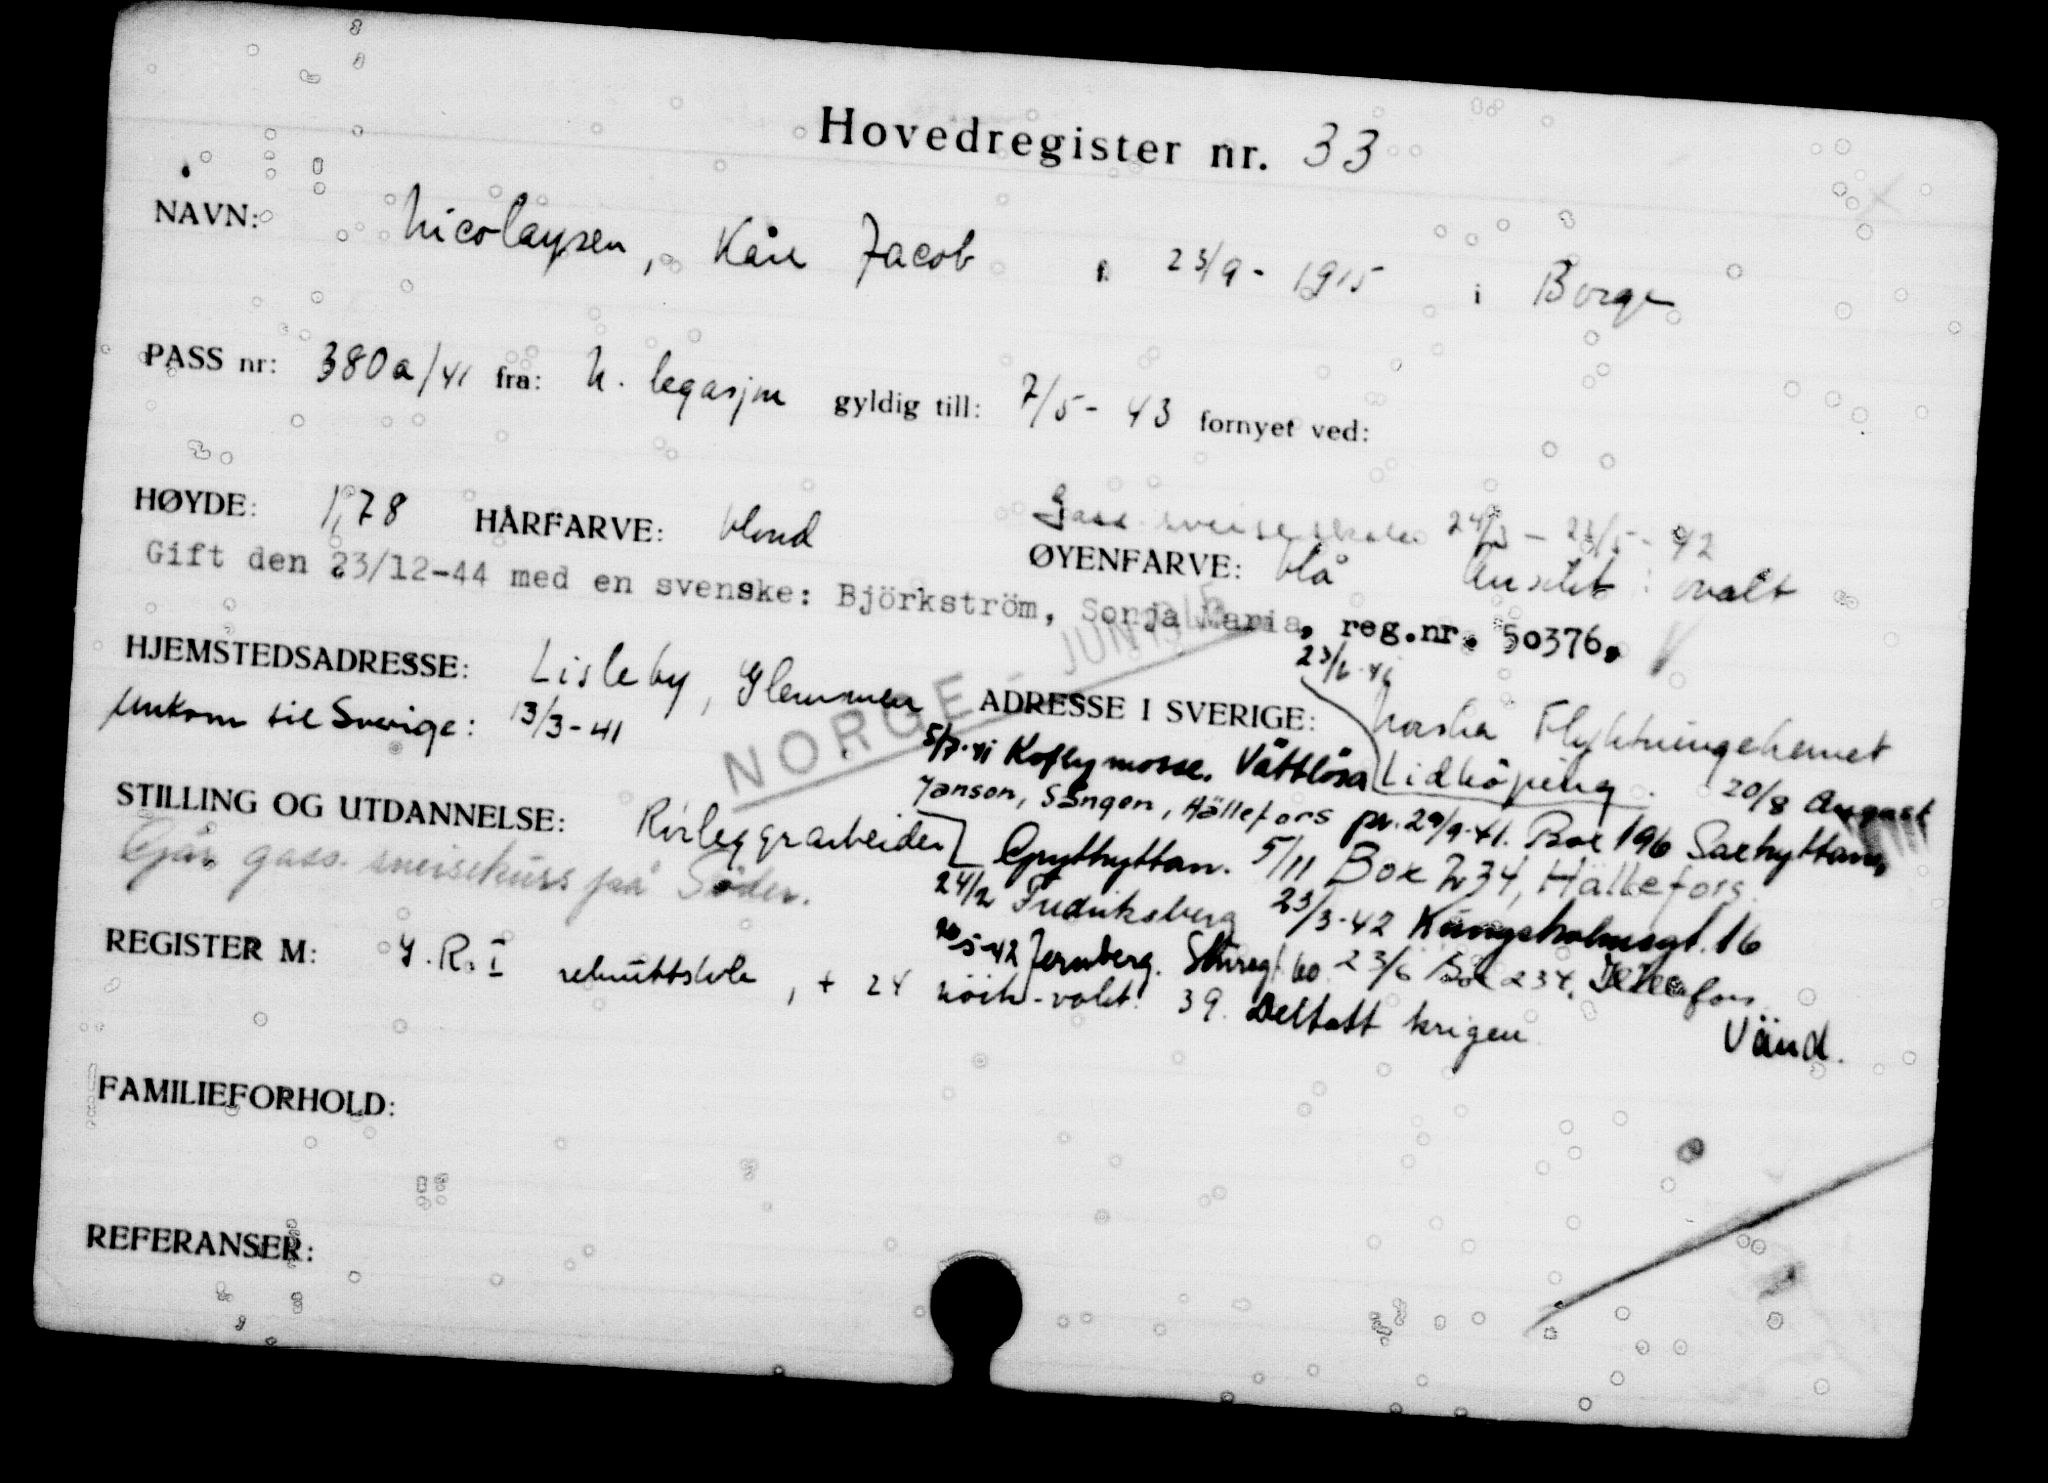 Hovedregister nr. 33
NAVN: Nicolaysen, Kåre Jacob 23/9 - 1915 i Borge
PASS nr: 380a/41 fra: N. legasjon gyldig till: 7/5 - 43 fornyet ved:
Gass sveiseskolen 24/3 - 23/5 - 42
HØYDE: 1,78 HÅRFARVE: blond ØYENFARVE: blå Ansikt: ovalt
Gift den 23/12-44 med en svenske: Björkström, Sonja Maria, reg.nr. 50376.
NORGE - JUNI
HJEMSTEDSADRESSE: Lisleby, Glemmen ADRESSE I SVERIGE: Norska Flyktningehemet
Ankom til Sverige: 13/3-41
5/7-41 Vättlösa Lidköping. 20/8 August
Janson, Sången, Hällefors pr. 29/9-41. Box 196 Saxhyttan,
STILLING OG UTDANNELSE: Rørleggerarbeider Grythyttan. 5/11 Box 234, Hällefors.
Går gass. sveisekurs på Söder.
24/2 Fredriksberg 23/3-42 Kungsholmsgt. 16
5-42 Jernberg. 23/6 Box 234, Hellefors
REGISTER M: I.R.I rekruttskole, + 24 nöitr-vakt. 39. Deltatt krigen
Vänd.
FAMILIEFORHOLD:
REFERANSER: